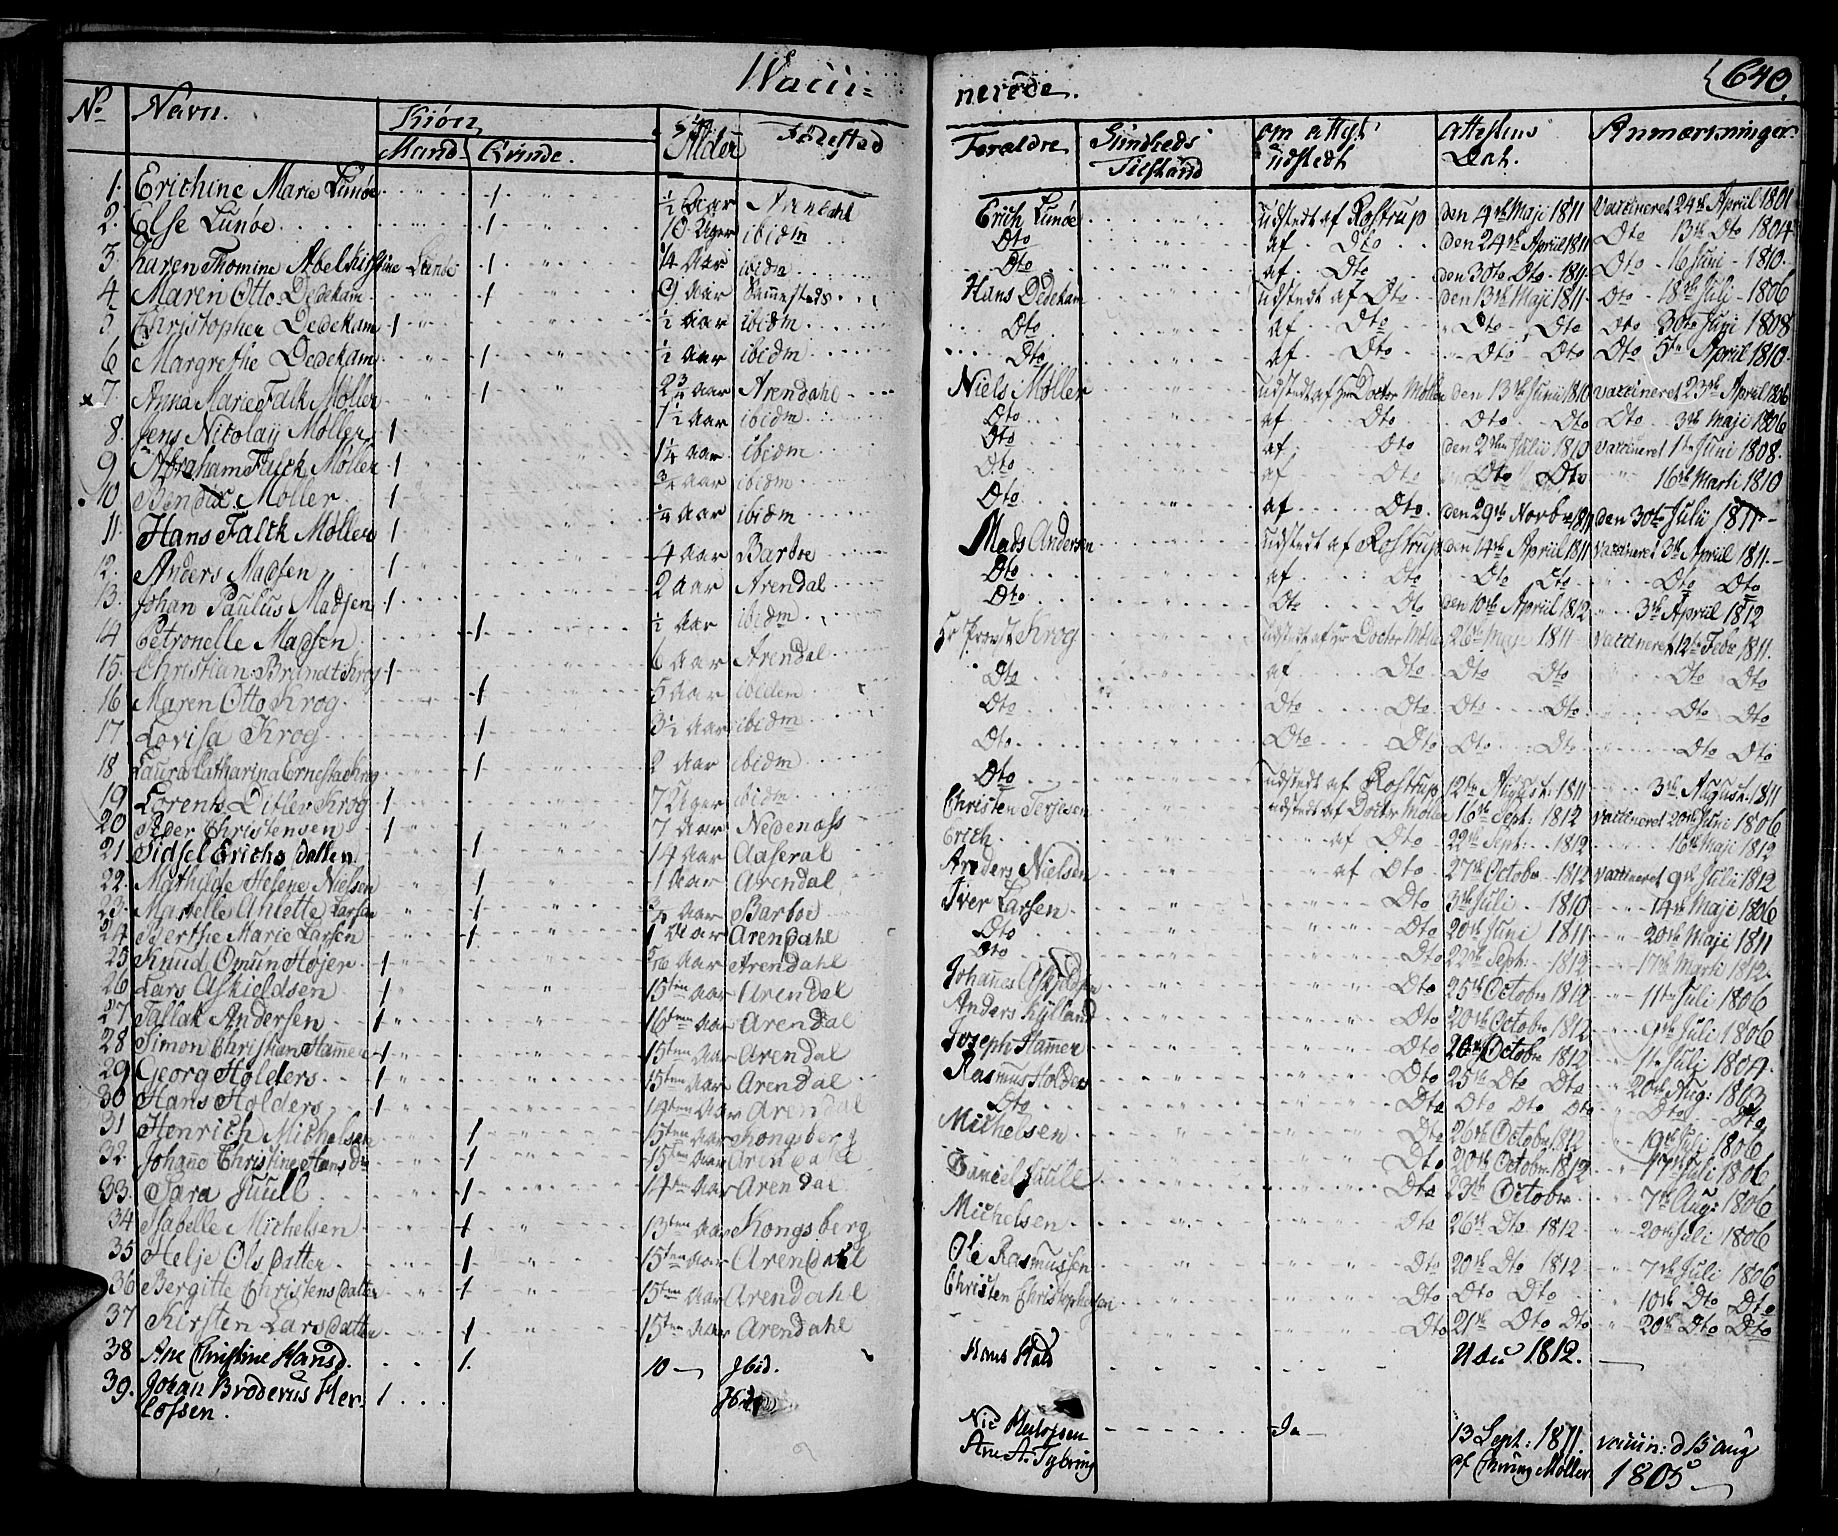 Vacci= nerede. 640.
No Navn. Kiøn Alder Fødestad Forældre Sundheds Tilstand om attest udstedt attestens Dat. Anmærkninger.
Mand Qvinde.
1. Erichine Marie Lunøe 1 ½ Aar Arendahl Erich Lunøe udstedt af Rostrup den 4de Maji 1811 Vaccineret 24de April 1801
2. Else Lunøe 1 10 Uger ibidm Dto af Dto den 24de April 1811 Dto 13de Dto 1804
3. Karen Thomine Abelkistine Lunøe 1 ¼ Aar ibidm Dto af Dto den 30te Dto 1811 Dto 16 Juni 1810
4. Maren Otto Dedekam 1 9 Aar Sammesteds Hans Dedekam udstedt af Dto den 13de Maji 1811 Dto 18de Juli 1806
5. Christopher Dedekam 1 ½ Aar ibidm Dto af Dto Dto Dto Dto 30te Juni 1808
6 Margrethe Dedekam 1 ½ Aar ibidm Dto af Dto Dto Dto Dto 5te April 1810
x 7. Anna Marie Falck Møller 1 2¾ Aar Arendahl Niels Møller udstedt af Hr Doctor Møller den 13de Junii 1810 Vaccineret 23de April 1806
8. Jens Nicolaij Møller 1 1½ Aar ibidm Dto af Dto Dto Dto Dto 3de Maji 1806
9 Abraham Falck Møller 1 1¼ Aar ibidm Dto af Dto den 2den Julii 1810 Vaccineret 1te Juni 1808.
10 Bendix Møller 1 ¾ Aar ibidm Dto af Dto Dto Dto 16de Marti 1810
11. Hans Falck Møller 1 ¼ Aar ibidm Dto af Dto den 29de Novbr 1811 den 30te Julii 1811
12. Anders Madsen 1 4 Aar Barboe Mads Andersen udstedt af Rostrup den 14de April 1811 Vaccineret 3de April 1811
13. Johan Paulus Madsen 1 2 Aar Arendal Dto af Dto Dto Dto Dto Dto
14 Petronelle Madsen 1 ½ Aar ibidm Dto Dto Dto den 10de April 1812 3de April 1812
15. Christian Brandt Krog 1 6 Aar Arendal Hr Provst Krog udstedt af Hr Doctor Møller 26de Maji 1811 Vaccineret 12te Febr 1811.
16 Maren Otto Krog 1 5 Aar ibidem Dto af Dto Dto Dto Dto Dto
17 Lovisa Krog 1 3½ Aar ibidm Dto Dto Dto Dto Dto Dto Dto
18 Laura Catharina Ernesta Krog 1 2 Aar ibidm Dto Dto Dto Dto Dto Dto Dto
19 Lorents Ditlev Krog 1 7 Uger ibidm Dto udstedt af Rostrup 12te August 1811 3de August 1811
20 Peder Christensen 1 7 Aar Nedenæss Christen Terjesen udstedt af Doctor Møller 16de Sept: 1812 Vaccineret 20de Juni 1806
21. Sidsel Erichs datter 1 14 Aar Aaseral Erich af Dto 22de Sept: 1812 16de Maji 1812
22. Mathilde Helene Nielsen 1 1 Aar Arendal Anders Nielsen af Dto 27de Octobr 1812 Vaccineret 9de Julii 1812
23. Maselle Ahlette Larsen 1 ¾ Aar Barboe Iver Larsen Dto 3de Juli 1810 14de Maji 1806
24 Berthe Marie Larsen 1 1 Aar Arendahl Dto Dto 20de Juni 1811 20de Maji 1811
25 Knud Omun Højer 1 Aar Arendahl Dto Dto 22de Sept: 1812 17de Marti 1812.
26 Lars Askieldsen 1 15ten Aar Arendal Johannes Askieldsen Dto 25de Octobr 1812 11te Juli 1806
27 Tallak Andersen 1 16ten Aar Arendal Anders Kylland Dto 20de Octobr 1812 9de Juli 1806
28 Simon Christian Hammer 1 15ten Aar Arendal Joseph Hammer Dto 20de Octobr 1812 11te Juli 1804.
29 Georg Holders 1 15ten Aar Arendal Rasmus Holders Dto 25de Dto Dto 20de Aug: 1803
30 Hans Holders 1 14ten Aar Arendal Dto Dto Dto Dto Dto Dto Dto
31 Henrich Michelsen 1 15ten Aar Kongsberg Michelsen Dto 26de Octobr 1812 19de Juli 1806
32. Johanne Christine Hans Dr 1 15ten Aar Arendahl Dto 20de Octobr 1812 17de Juli 1806
33. Sara Juull 1 14ten Aar Arendal Daniel Juull Dto 23de October 7de Aug: 1806
34 Isabelle Michelsen 1 13ten Aar Kongsberg Michelsen Dto 26de Dto 1812 20de Juli 1806
35 Helje Ols Datter 1 15ten Aar Arendahl Ole Rasmussen Dto 20de Dto 1812 7de Juli 1806
36 Bergitte Christens Datter 1 15ten Aar Arendahl Christen Christophersen Dto Dto Dto 10de Dto Dto
37 Kirsten Lars Datter 1 15ten Aar Arendahl Dto 21de Dto Dto 20de Dto Dto
38 Ane Christine Hansd. 1. 10 Ibid. Hans 1812.
39. Johan Broderus Her= 1 Ibid Nic Herlofsen Ja 13 Sept: 1811. vaccin: d 15 aug
lofsen. Ane A. Tybring af Møller 1805